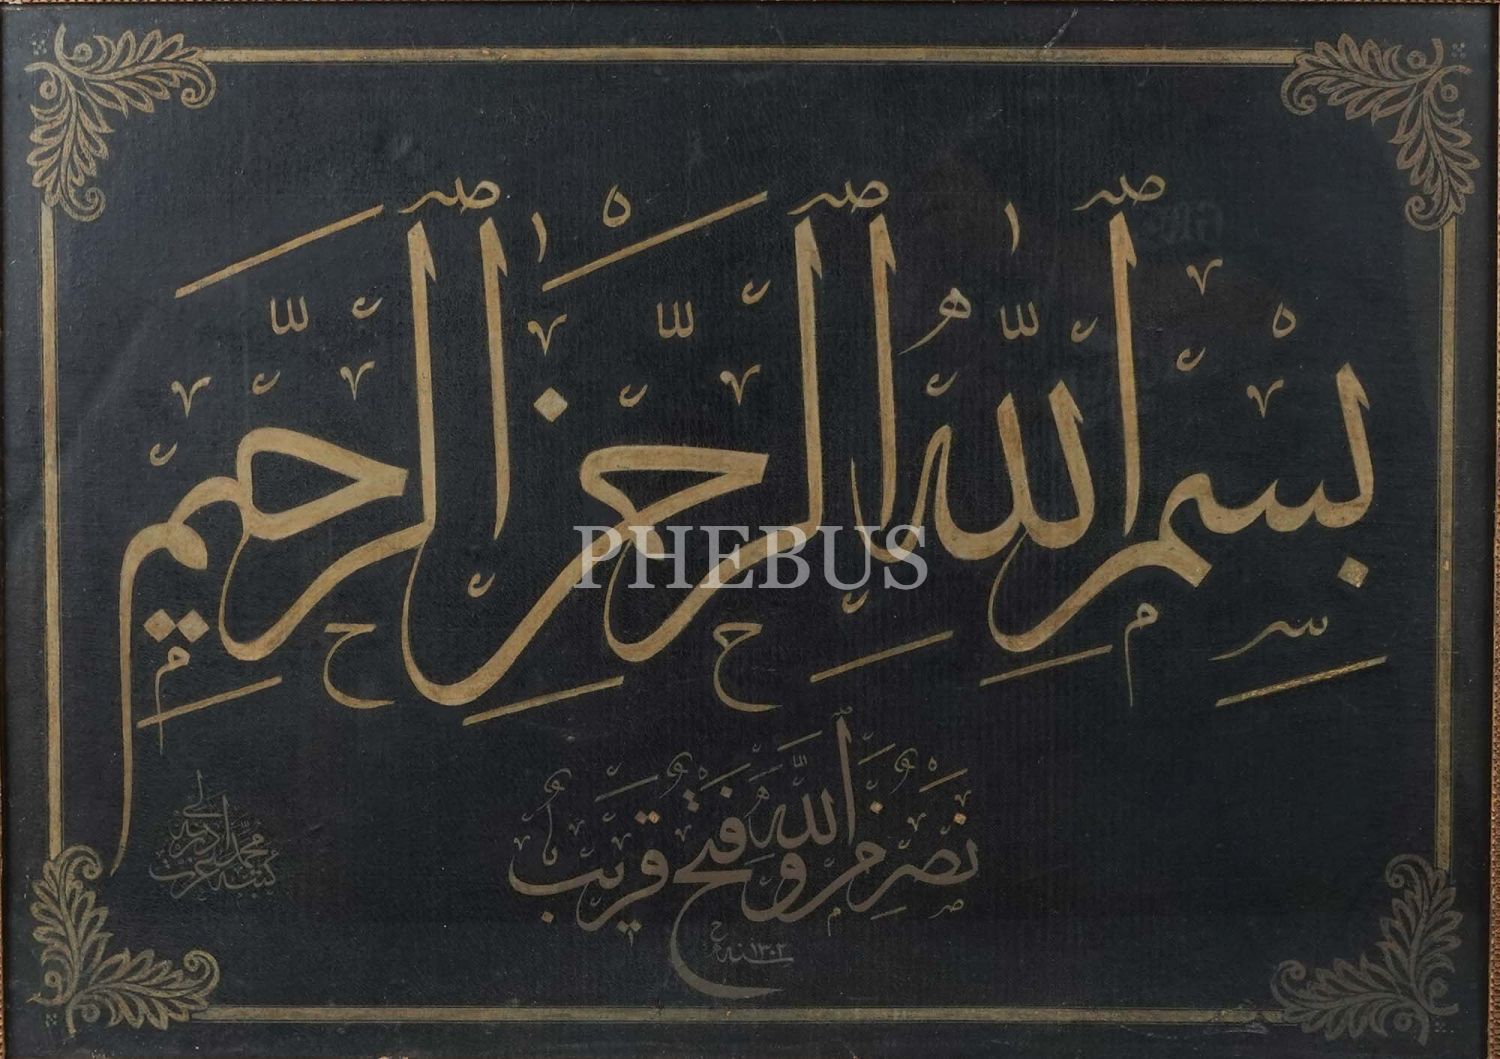 بِسْمِ اللَّهِ الرَّحْمَنِ الرَّحِيمِ
PHEBUS
نَصْرٌ مِنَ اللَّهِ وَفَتْحٌ قَرِيبٌ
كتبه محمد عزت
سنه ١٣٠٢